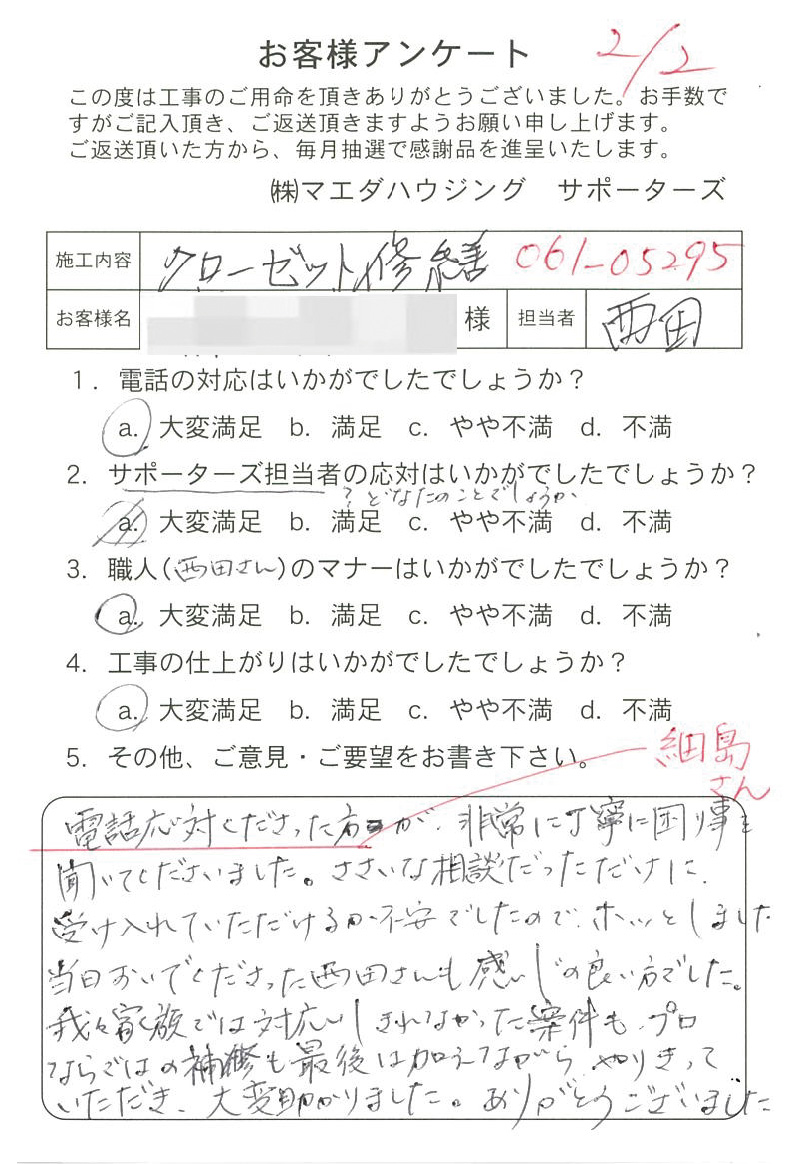 お客様アンケート 2/2
この度は工事のご用命を頂きありがとうございました。お手数で
すがご記入頂き、ご返送頂きますようお願い申し上げます。
ご返送頂いた方から、毎月抽選で感謝品を進呈いたします。
㈱マエダハウジング サポーターズ
施工内容 クローゼット修繕 061-05295
お客様名 様 担当者 西田
1. 電話の対応はいかがでしたでしょうか？
a. 大変満足 b. 満足 c. やや不満 d. 不満
2. サポーターズ担当者の応対はいかがでしたでしょうか？
？どなたのことでしょうか
a. 大変満足 b. 満足 c. やや不満 d. 不満
3. 職人（西田さん）のマナーはいかがでしたでしょうか？
a. 大変満足 b. 満足 c. やや不満 d. 不満
4. 工事の仕上がりはいかがでしたでしょうか？
a. 大変満足 b. 満足 c. やや不満 d. 不満
5. その他、ご意見・ご要望をお書き下さい。
細島
さん
電話応対くださった方が、非常に丁寧に困り事を
聞いてくださいました。ささいな相談だっただけに、
受け入れていただけるか不安でしたので、ホッとしました
当日おいでくださった西田さんも感じの良い方でした。
我々家族では対応しきれなかった案件も、プロ
ならではの補修も最後は加えながら、やりきって
いただき、大変助かりました。ありがとうございました